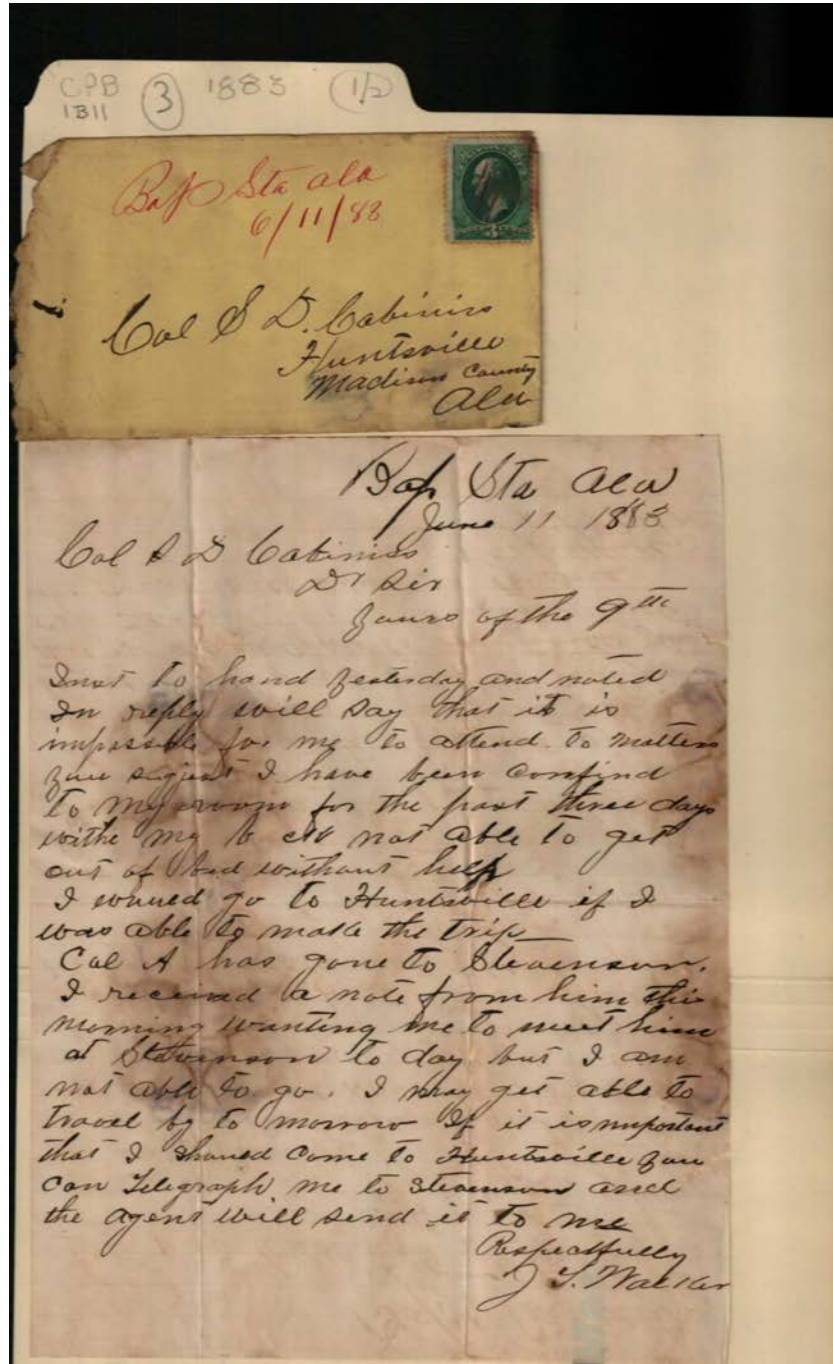 CPB 3 1883 (1/2)
1311
Sta ala
6/11/83
Col S D. Cabiniss
Huntsville
Madison County
Ala
Sta Ala
June 11 1883
Col S D Cabiniss
Dr Sir
Yours of the 9th
to hand yesterday and noted
In reply will say that it is
impossible for me to attend to matters
you I have been confind
to my room for the past three days
withe my not able to get
out of bed without help
I would go to Huntsville if I
was able to make the trip
Col A has gone to Stevenson.
I received a note from him this
morning wanting me to meet him
at Stevenson to day but I am
not able to go. I may get able to
travel by to morrow If it is important
that I should come to Huntsville you
can Telegraph me to Stevenson and
the agent will send it to me
Respectfully
Walker